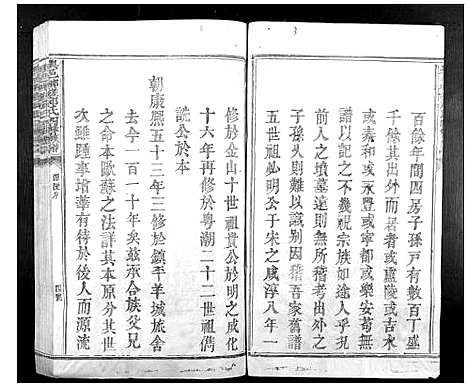 百餘年間四房子孫戸有數百丁盛
千億其出外而居者或盧陵或吉水
或秦和或萬載或寧都或樂安苟無
譜以記之不幾視宗族如途人乎况
子孫久則難以識别因稽吾家舊譜
前人之墳墓遠則無所稽考出外之
五世祖嗣明公于宋之咸淳八年一
修於金山十世祖貴公於明之成化
十六年再修於粤潮二十二世祖儁
詵公於本
朝康熙五十三年三修於鎮平羊城旅舍
去今一百一十年矣玆承合族父兄
之命本歐蘇之法詳其本原分其世
次雖踵事増華有待於後人而源流